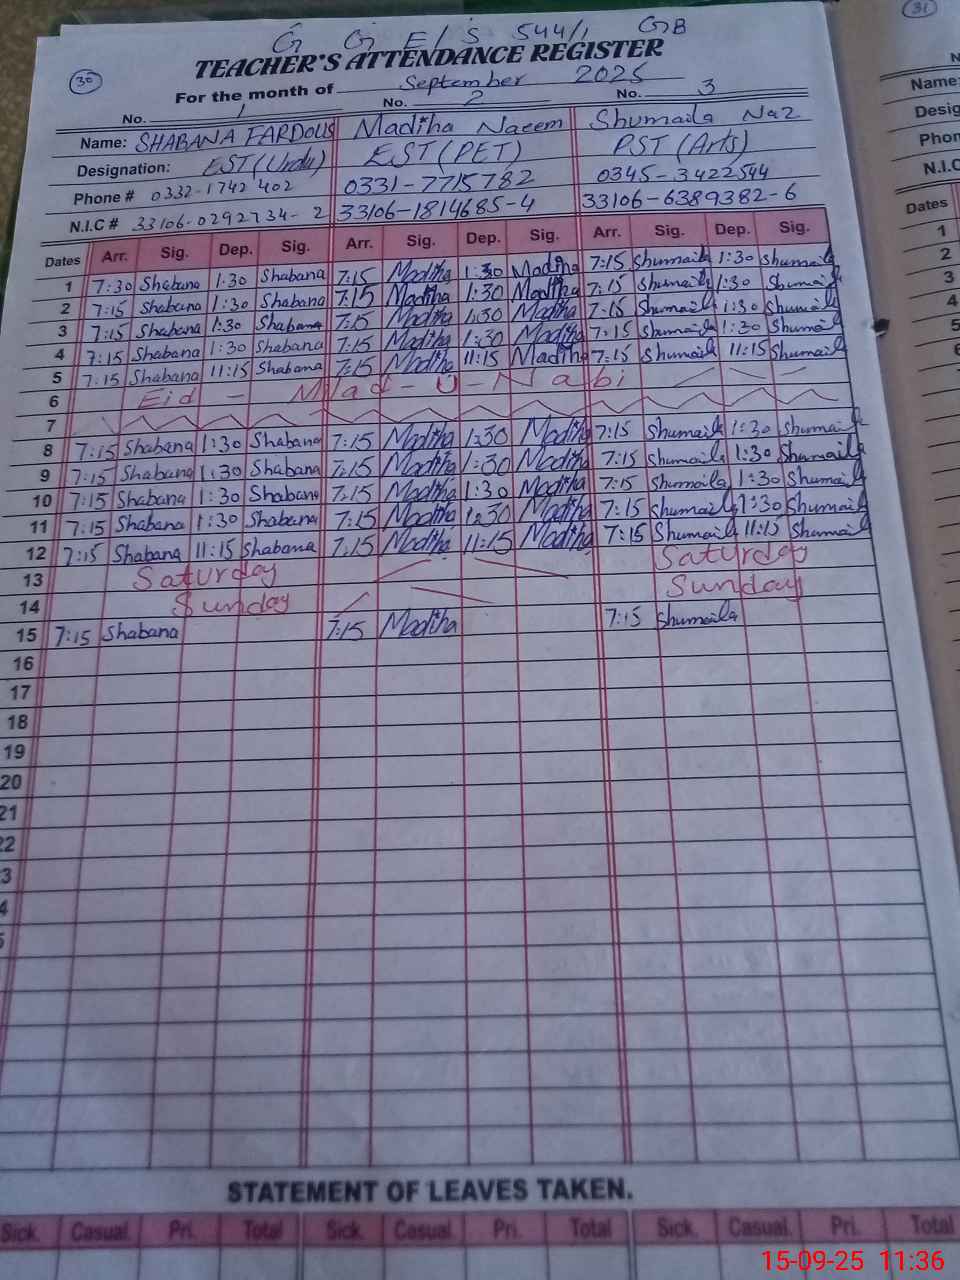 31
G G E/S 544/1 GB
30 TEACHER'S ATTENDANCE REGISTER
For the month of September 2025
No. 1 No. 2 No. 3
Name: SHABANA FARDOUS Madiha Naeem Shumaila Naz
Designation: EST (Urdu) EST (PET) PST (Arts)
Phone # 0332-1742402 0331-7715782 0345-3422544
N.I.C # 33106-0292734-2 33106-1814685-4 33106-6389382-6
Dates Arr. Sig. Dep. Sig. Arr. Sig. Dep. Sig. Arr. Sig. Dep. Sig.
1 7:30 Shabana 1:30 Shabana 7:15 Madiha 1:30 Madiha 7:15 Shumaila 1:30 Shumaila
2 7:15 Shabana 1:30 Shabana 7:15 Madiha 1:30 Madiha 7:15 Shumaila 1:30 Shumaila
3 7:15 Shabana 1:30 Shabana 7:15 Madiha 1:30 Madiha 7:15 Shumaila 1:30 Shumaila
4 7:15 Shabana 1:30 Shabana 7:15 Madiha 1:30 Madiha 7:15 Shumaila 1:30 Shumaila
5 7:15 Shabana 11:15 Shabana 7:15 Madiha 11:15 Madiha 7:15 Shumaila 11:15 Shumaila
6 Eid - Milad - U - Nabi
7
8 7:15 Shabana 1:30 Shabana 7:15 Madiha 1:30 Madiha 7:15 Shumaila 1:30 Shumaila
9 7:15 Shabana 1:30 Shabana 7:15 Madiha 1:30 Madiha 7:15 Shumaila 1:30 Shumaila
10 7:15 Shabana 1:30 Shabana 7:15 Madiha 1:30 Madiha 7:15 Shumaila 1:30 Shumaila
11 7:15 Shabana 1:30 Shabana 7:15 Madiha 1:30 Madiha 7:15 Shumaila 1:30 Shumaila
12 7:15 Shabana 11:15 Shabana 7:15 Madiha 11:15 Madiha 7:15 Shumaila 11:15 Shumaila
13 Saturday Saturday
14 Sunday Sunday
15 7:15 Shabana 7:15 Madiha 7:15 Shumaila
16
17
18
19
20
21
22
3
4
5
STATEMENT OF LEAVES TAKEN.
Sick. Casual. Pri. Total Sick. Casual. Pri. Total Sick. Casual. Pri. Total
Name:
Desig
Phon
N.I.C
Dates
1
2
3
4
5
6
15-09-25 11:36